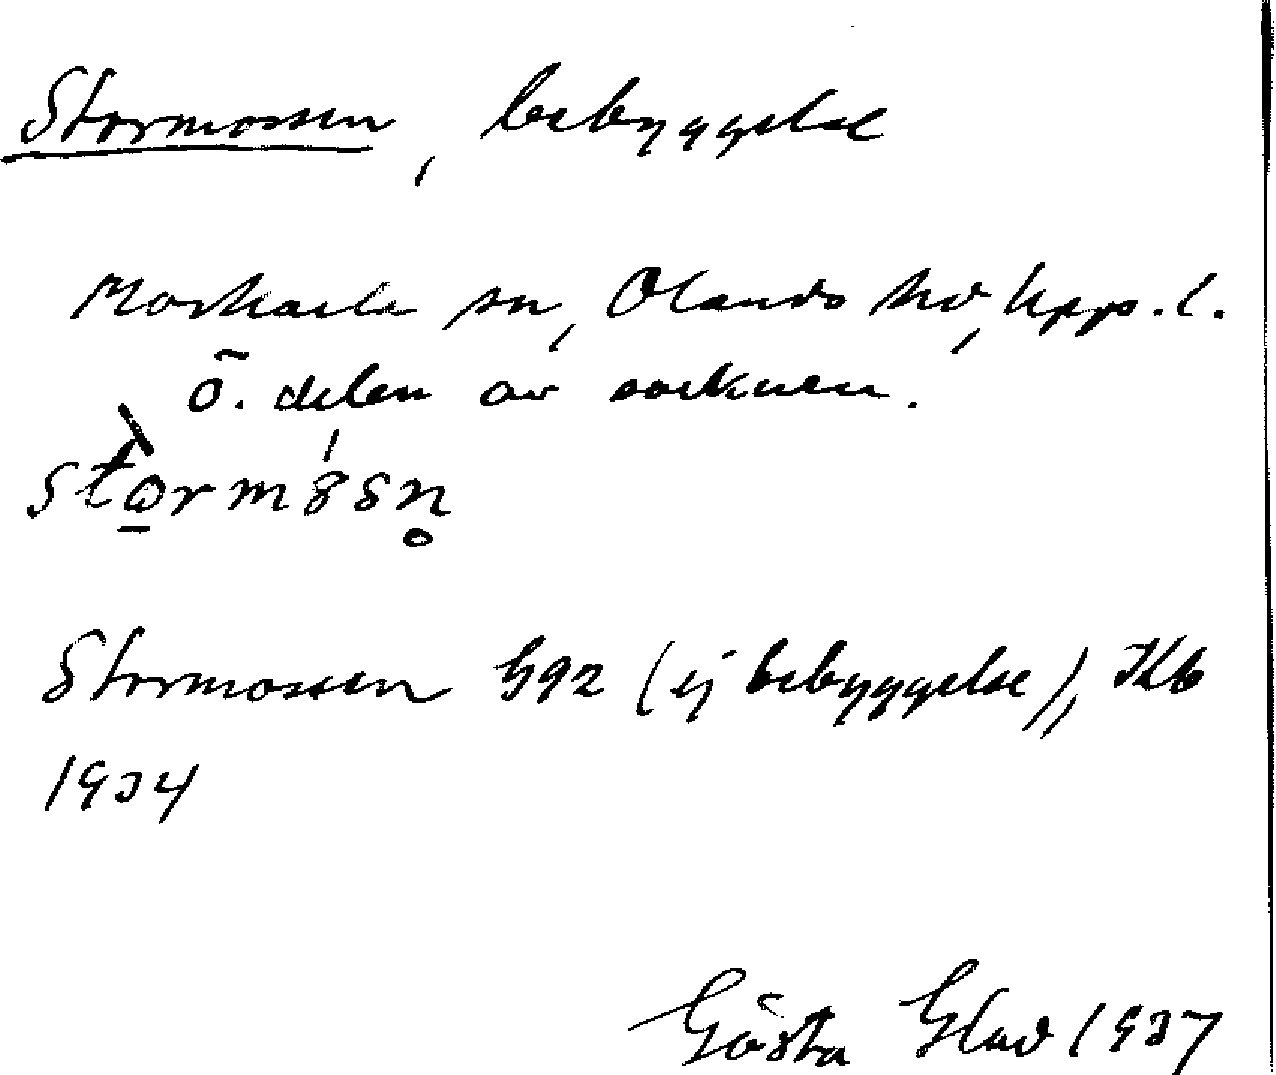 Stormossen, bebyggelse
Morkarla sn, Olands hd, Upps. l.
Ö. delen av socknen.
Stormossen G92 (ej bebyggelse), Kb
1934
Gösta Glad 1937